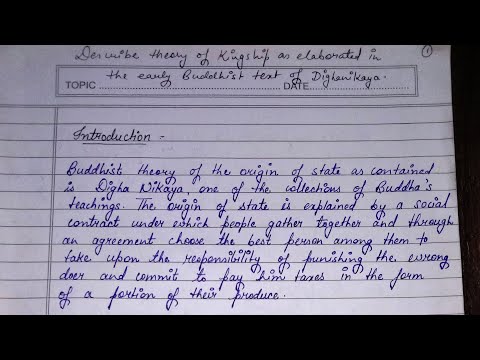 Describe theory of Kingship as elaborated in
1
the early Buddhist text of Dighanikaya.
TOPIC DATE
Introduction -
Buddhist theory of the origin of state as contained
is Digha Nikaya, one of the collections of Buddha's
teachings. The origin of state is explained by a social
contract under which people gather together and through
an agreement choose the best person among them to
take upon the responsibility of punishing the wrong
doer and commit to pay him taxes in the form
of a portion of their produce.